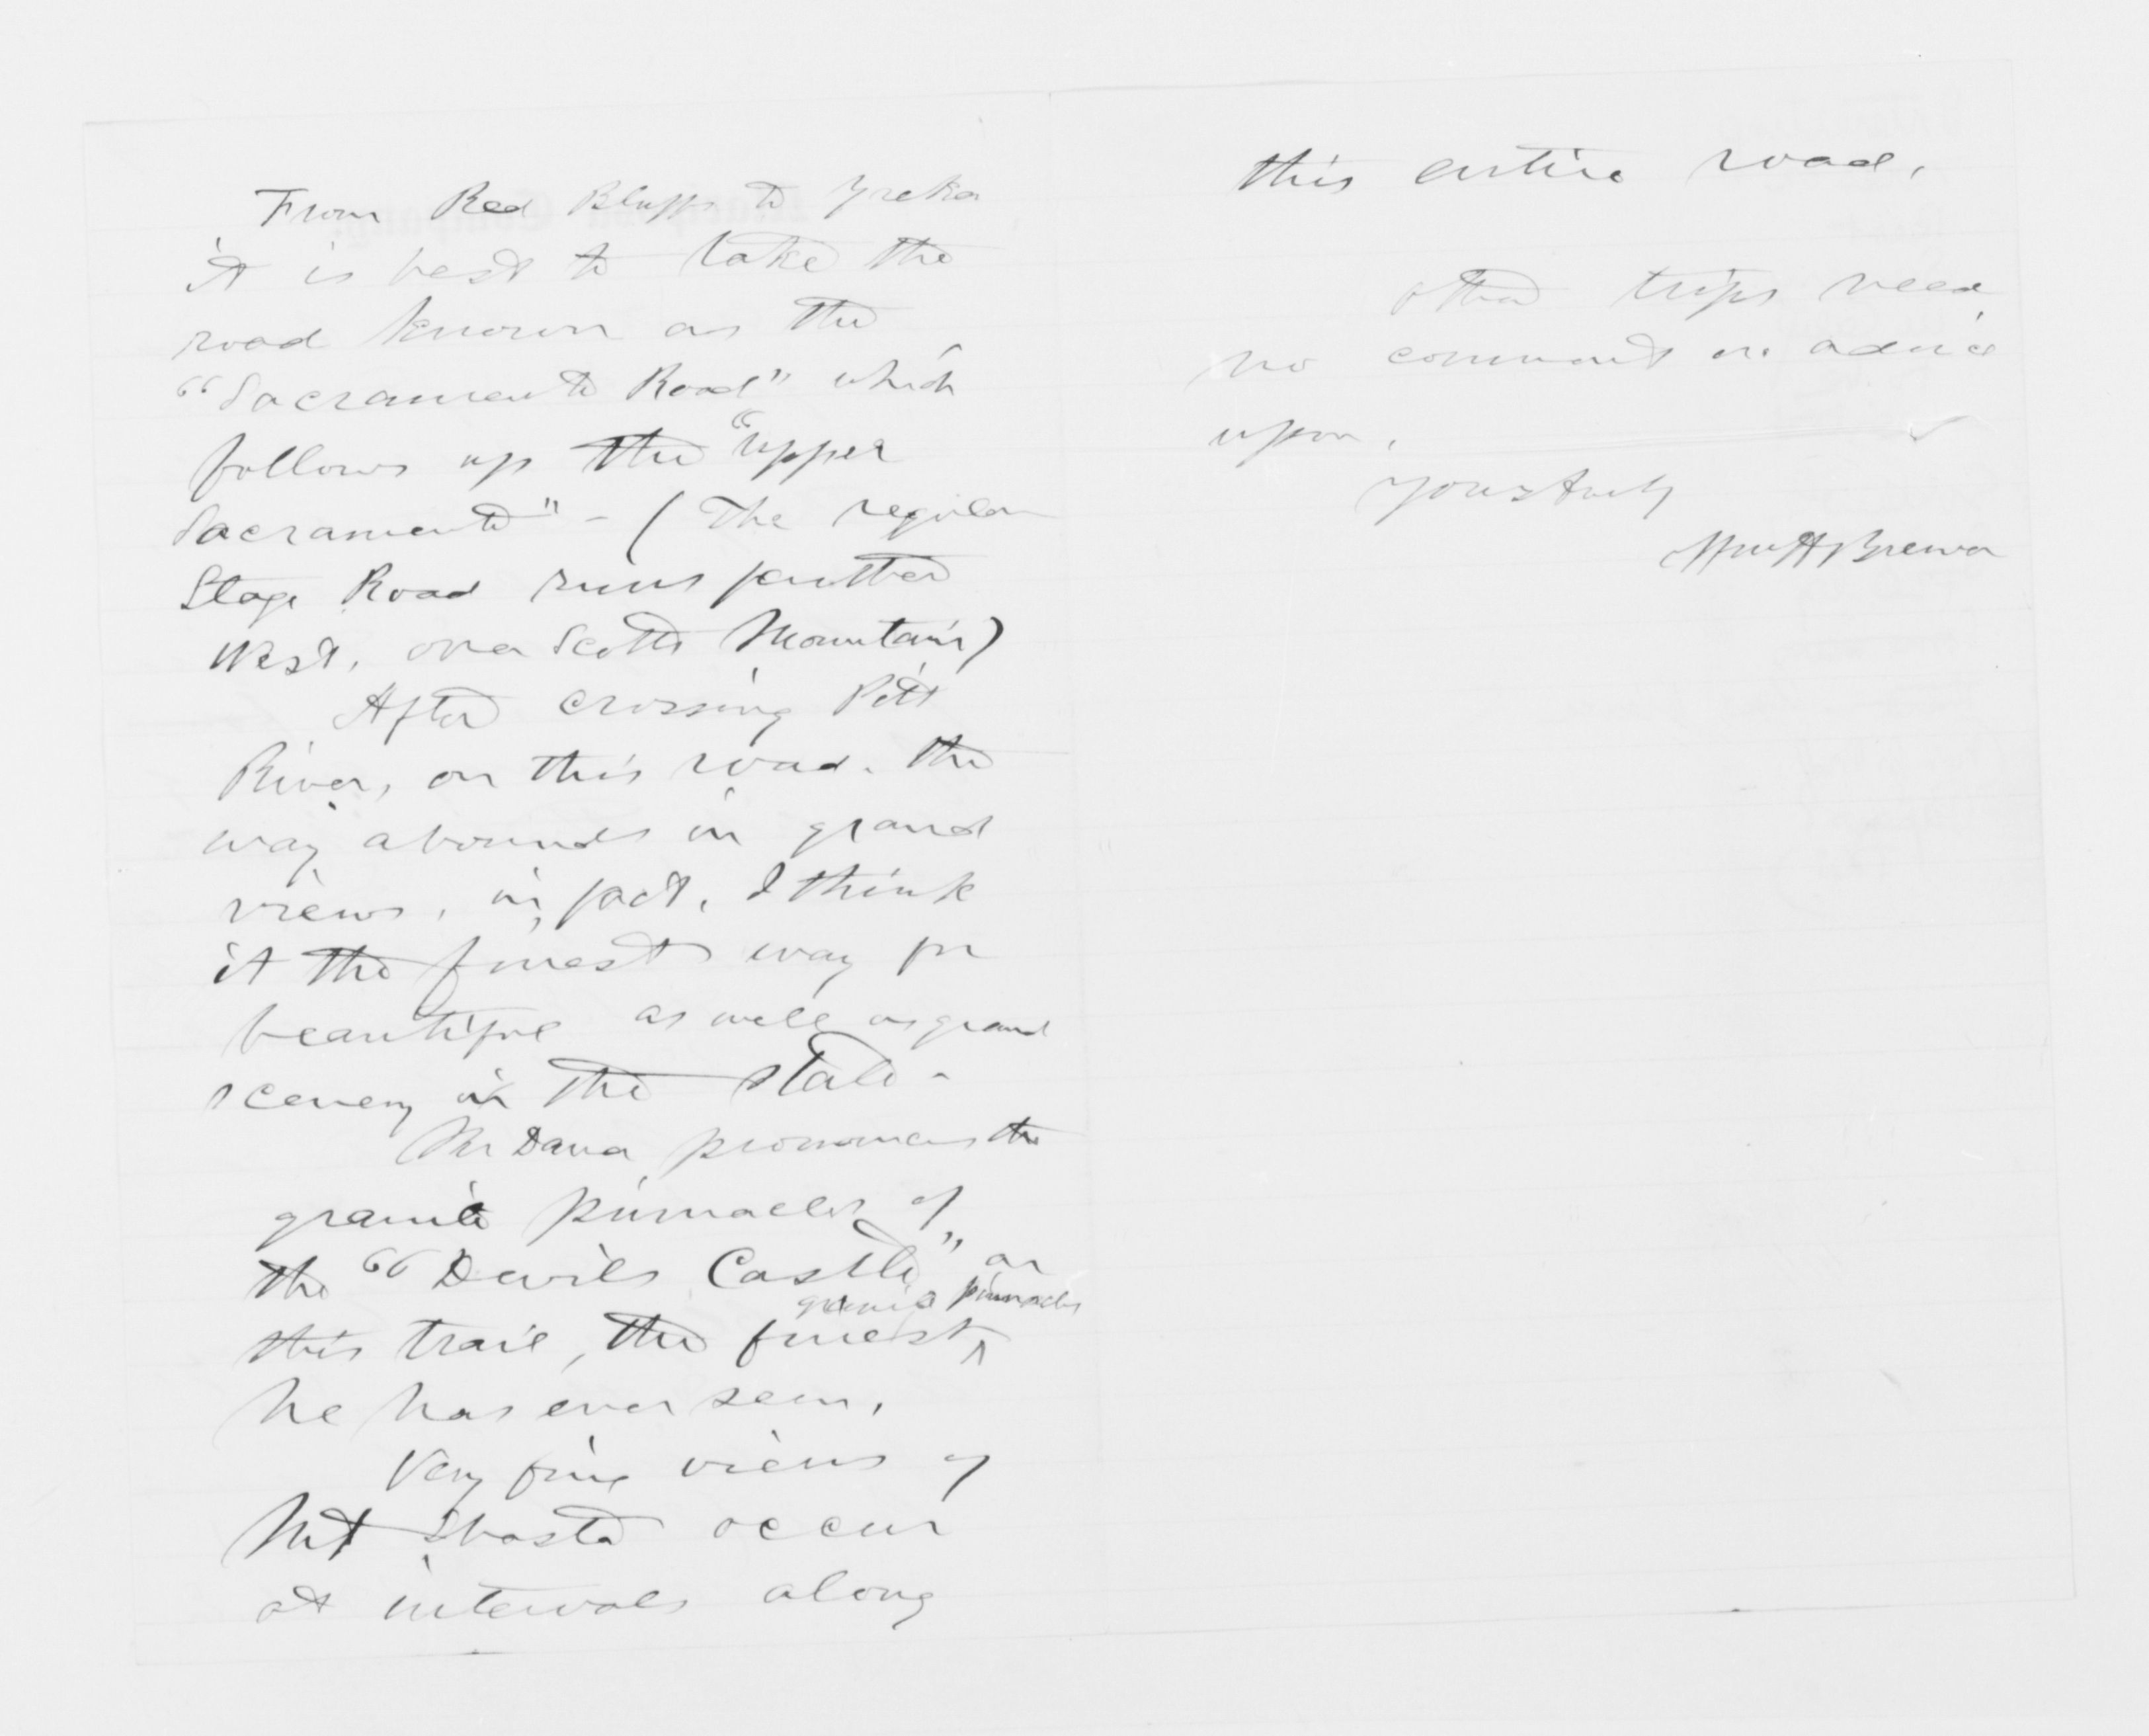 From Red Bluffs to Yreka
it is best to take the
road known as the
"Sacramento Road" which
follows up the "upper
Sacramento" - (The regular
Stage Road runs further
West, over Scotts Mountain)
After crossing Pitt
River, on this road. the
way abounds in grand
views, in fact, I think
it the finest way for
beautiful as well as grand
scenery in the state -
Mr Dana pronounces the
granite pinnacles of
the "Devils Castle" on
granite pinnacles
this trail, the finest ^
he has ever seen,
Very fine views of
Mt Shasta occur
at intervals along
this entire road.
other trips need
no comment or advice
upon.
Yours truly
Wm H Brewer